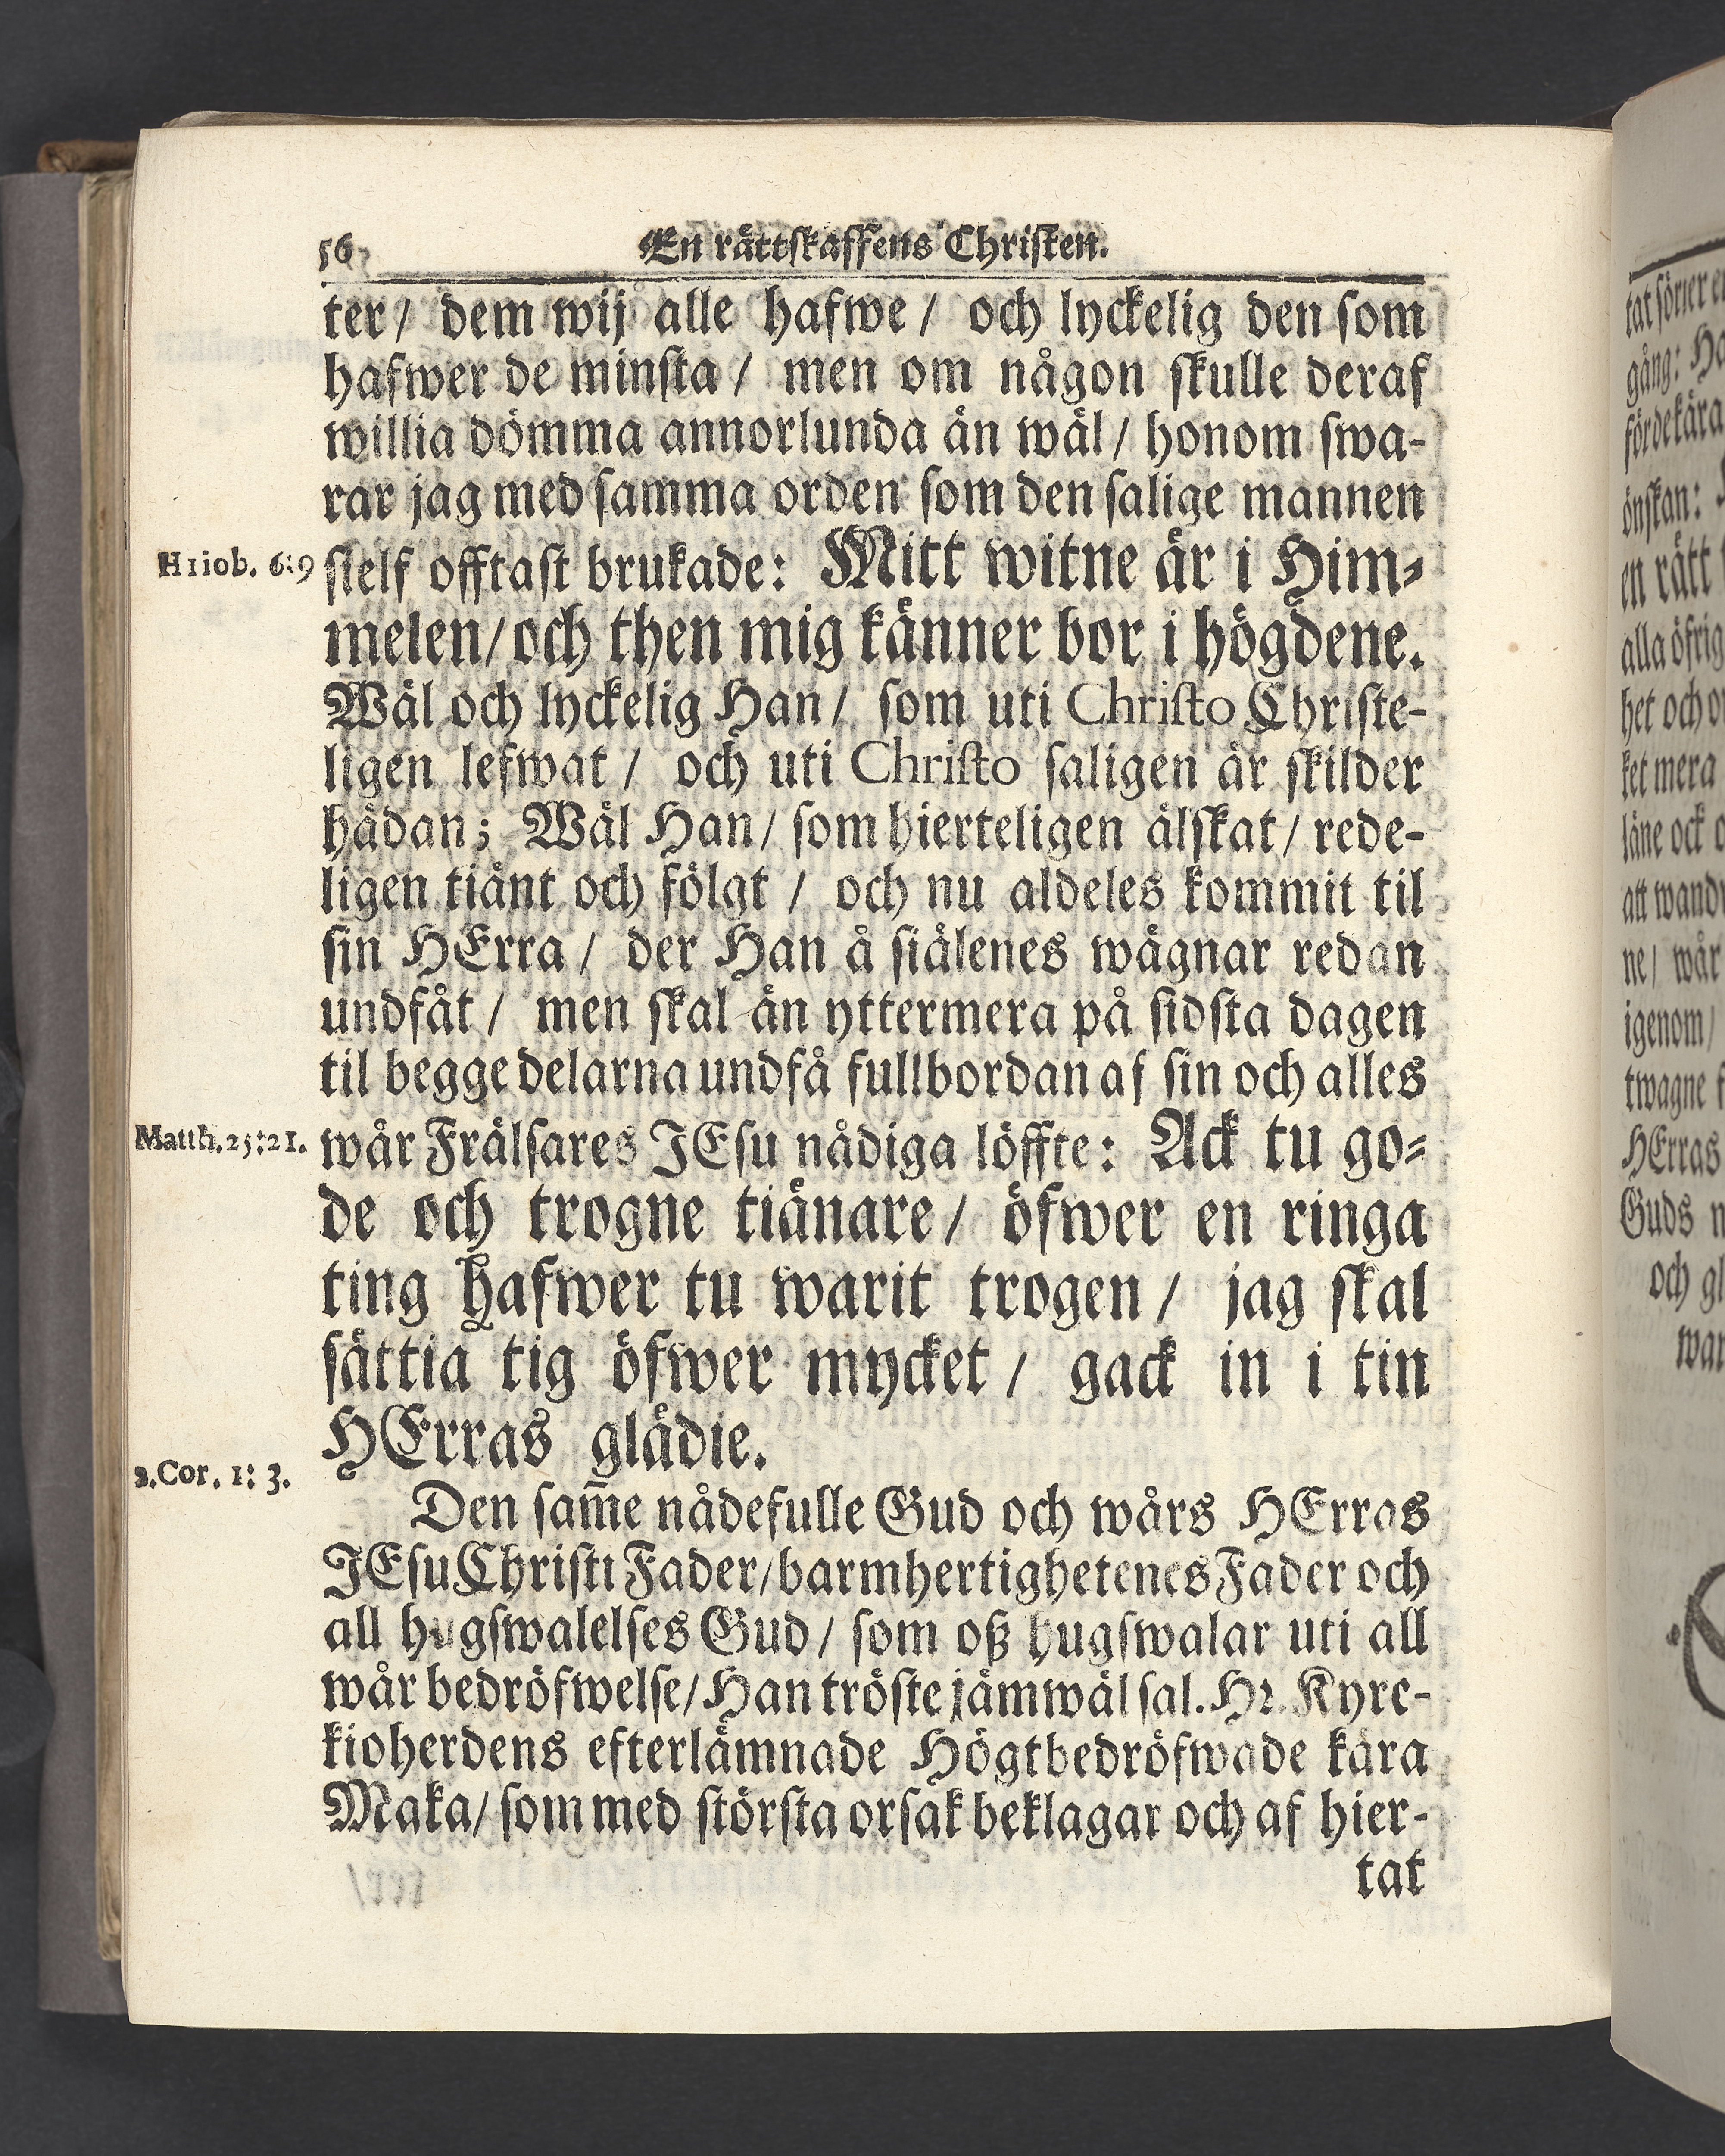 56
En rättskaffens Christen.
ter/ dem wij alle hafwe/ och lyckelig den som
hafwer de minsta/ men om någon skulle deraf
willia dömma annorlunda än wäl/ honom swa-
rar jag med samma orden som den salige mannen
Hiiob. 6:9
sielf offtast brukade: Mitt witne är i Him-
melen/ och then mig känner bor i högdene.
Wäl och lyckelig Han/ som uti Christo Christe-
ligen lefwat/ och uti Christo saligen är skilder
hädan; Wäl Han/ som hierteligen älskat/ rede-
ligen tiänt och fölgt/ och nu aldeles kommit til
sin HErra/ der Han å siälenes wägnar redan
undfåt/ men skal än yttermera på sidsta dagen
til begge delarna undfå fullbordan af sin och alles
Matth. 25:21.
wår Frälsares JEsu nådiga löffte: Ack tu go-
de och trogne tiänare/ öfwer en ringa
ting hafwer tu warit trogen/ jag skal
sättia tig öfwer mycket/ gack in i tin
HErras glädie.
2.Cor. 1: 3.
Den sam̃e nådefulle Gud och wårs HErras
JEsu Christi Fader/ barmhertighetenes Fader och
all hugswalelses Gud/ som oß hugswalar uti all
wår bedröfwelse/ Han tröste jämwäl sal. Hr. Kyrc-
kioherdens efterlämnade Högtbedröfwade kära
Maka/ som med största orsak beklagar och af hier-
tat